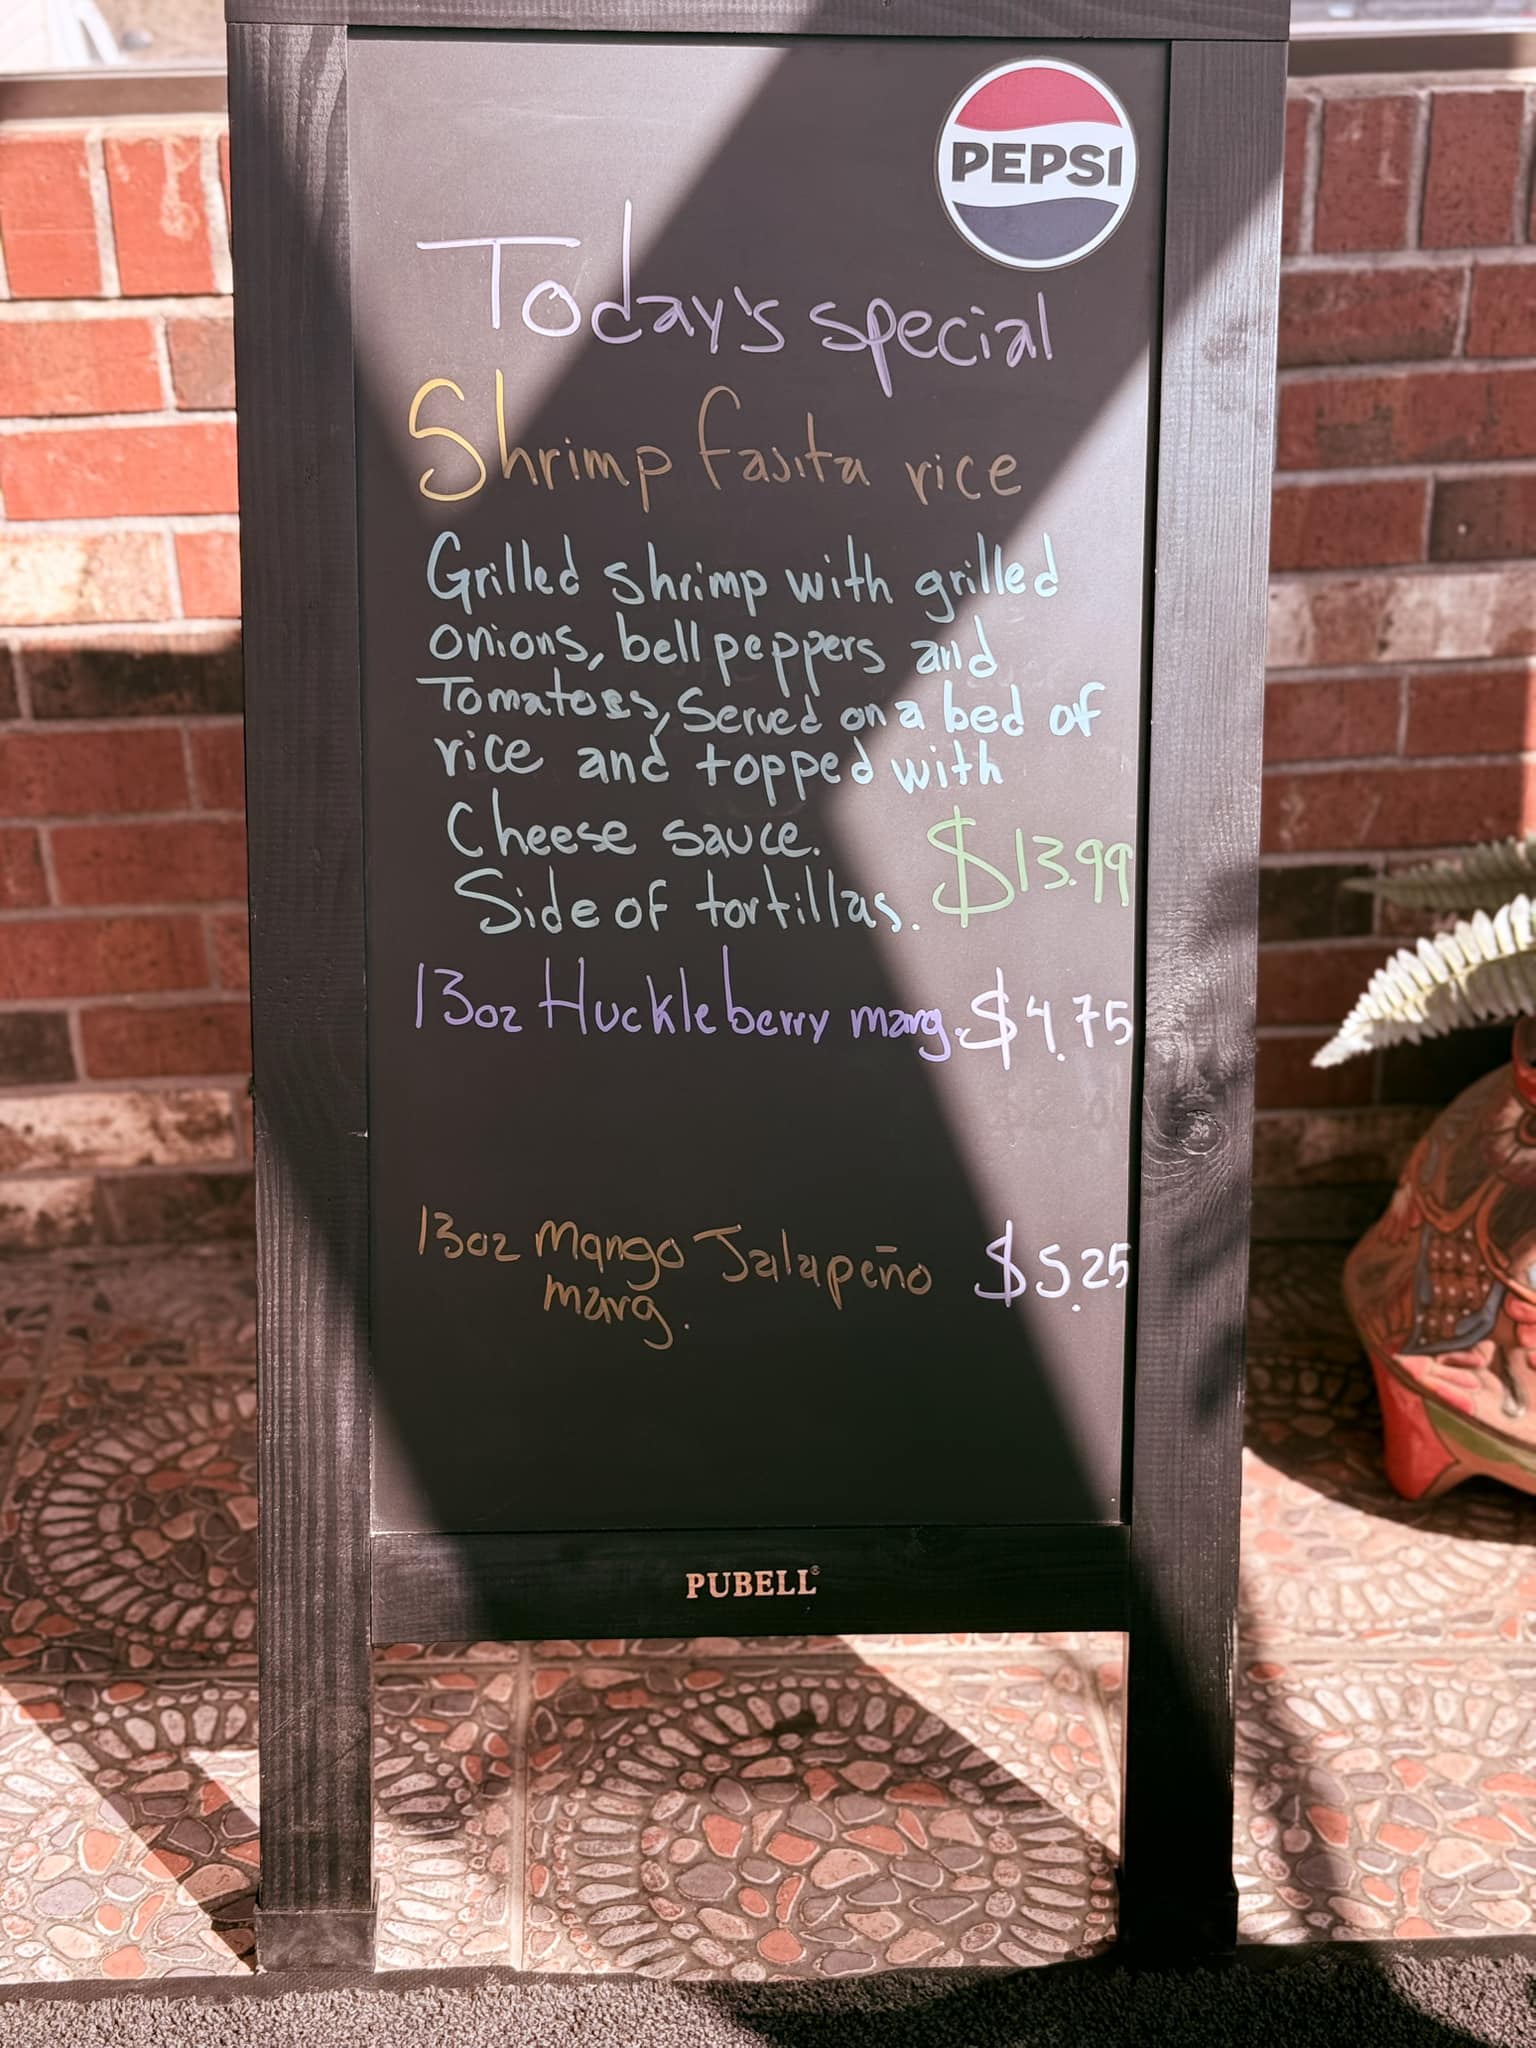 PEPSI
Today's special
Shrimp fajita rice
Grilled shrimp with grilled
onions, bell peppers and
Tomatoes, Served on a bed of
rice and topped with
Cheese sauce.
Side of tortillas. $13.99
13oz Huckleberry marg. $4.75
13oz Mango Jalapeño $5.25
marg.
PUBELL®